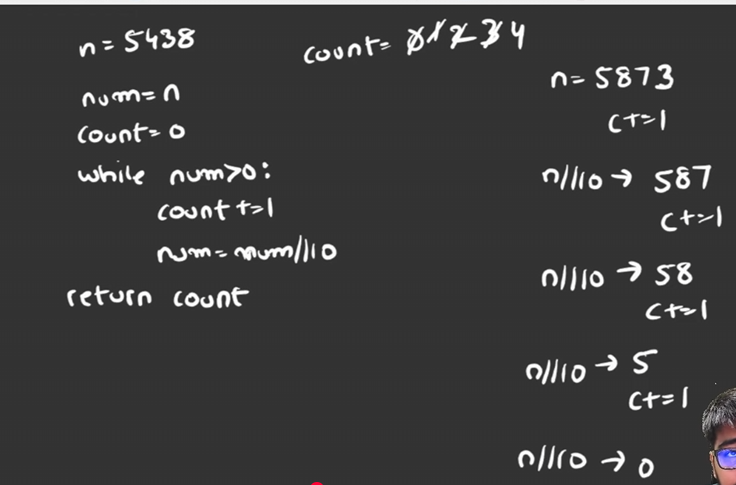 n = 5438
num = n
count = 0
while num>0:
count += 1
num = num//10
return count
count = 0 1 2 3 4
n = 5873
c+=1
n//10 → 587
c+=1
n//10 → 58
c+=1
n//10 → 5
c+=1
n//10 → 0